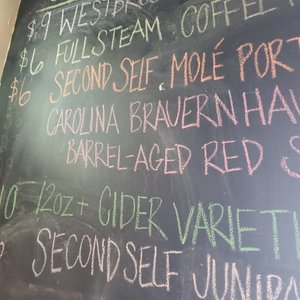 $9 WESTBRO
$6 FULLSTEAM COFFEE
$6 SECOND SELF. MOLÉ POR
CAROLINA BRAUERN HAU
BARREL-AGED RED S
10 12oz+ CIDER VARIETI
SECOND SELF JUNIP